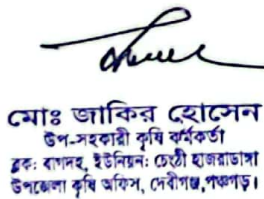 মোঃ জাকির হোসেন
উপ-সহকারী কৃষি কর্মকর্তা
ব্লক: বাগদহ, ইউনিয়ন: চেংঠী হাজরাডাঙ্গা
উপজেলা কৃষি অফিস, দেবীগঞ্জ,পঞ্চগড়।